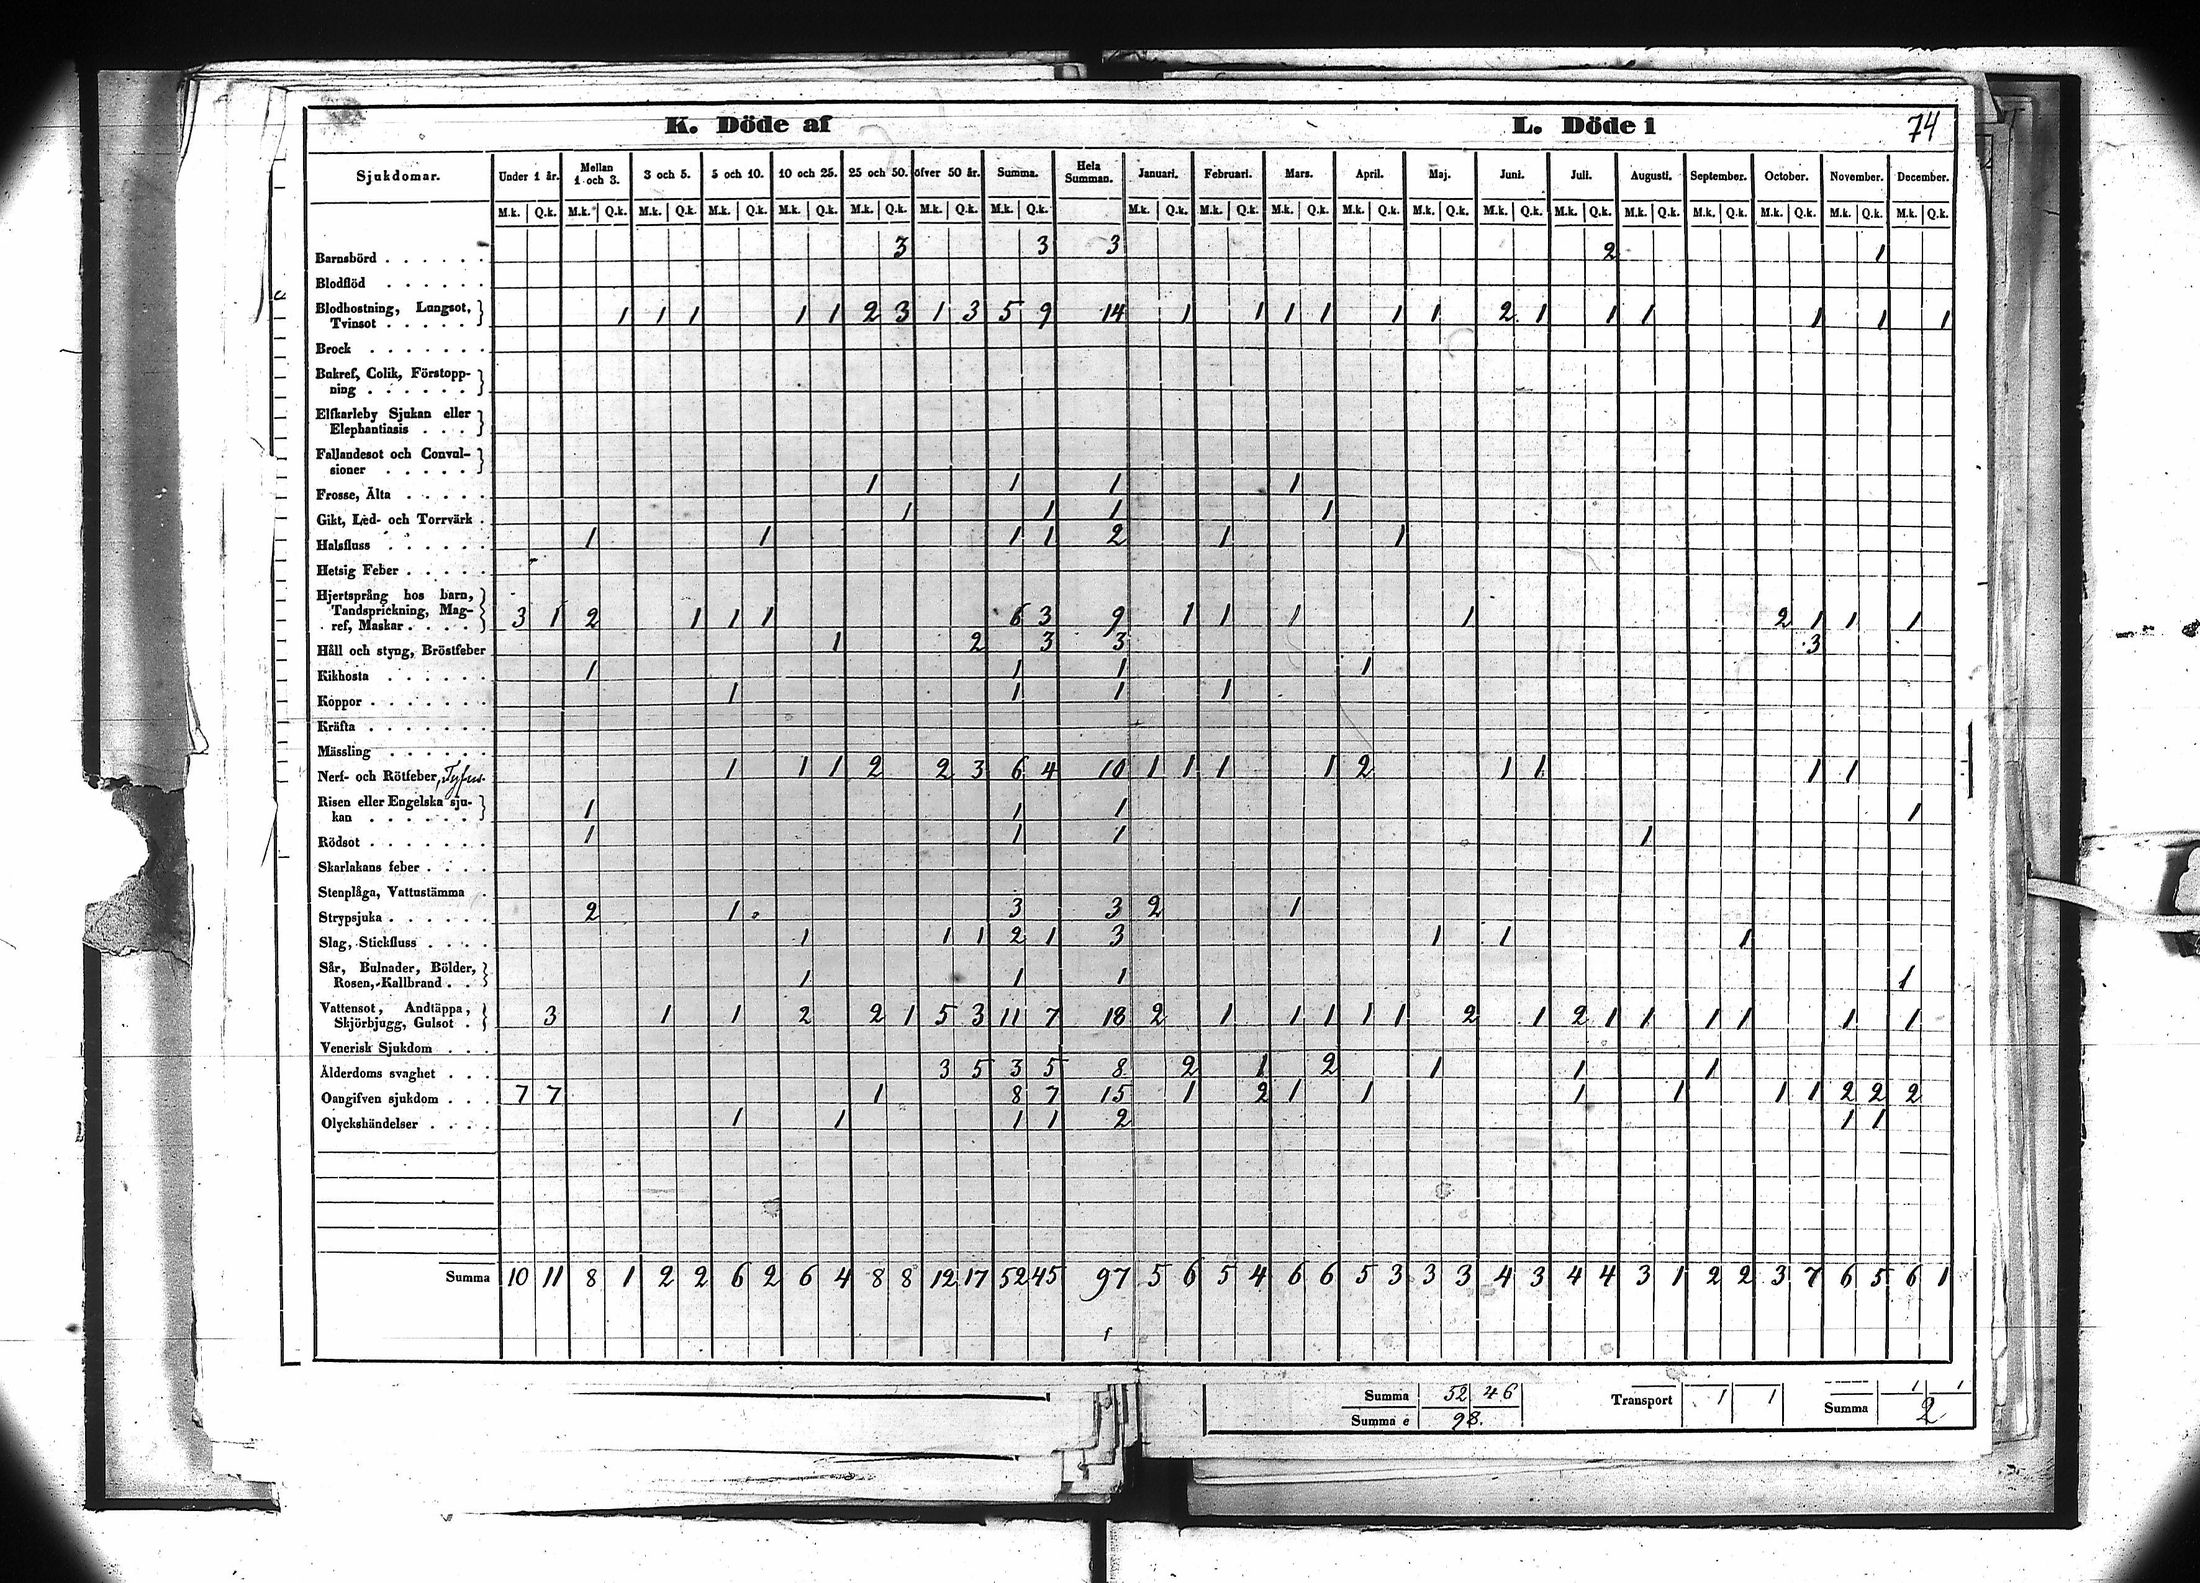 K. Döde af L. Döde i 74
Sjukdomar. Under 1 år. Mellan 1 och 3. 3 och 5. 5 och 10. 10 och 25. 25 och 50. öfver 50 år. Summa. Hela Summan. Januari. Februari. Mars. April. Maj. Juni. Juli. Augusti. September. October. November. December.
M.k. Q.k. M.k. Q.k. M.k. Q.k. M.k. Q.k. M.k. Q.k. M.k. Q.k. M.k. Q.k. M.k. Q.k. M.k. Q.k. M.k. Q.k. M.k. Q.k. M.k. Q.k. M.k. Q.k. M.k. Q.k. M.k. Q.k. M.k. Q.k. M.k. Q.k. M.k. Q.k. M.k. Q.k. M.k. Q.k.
Barnsbörd . . . . . . 3 3 3 2 1
Blodflöd . . . . . .
Blodhostning, Lungsot,
Tvinsot . . . . . 1 1 1 1 1 2 3 1 3 5 9 14 1 1 1 1 1 1 2 1 1 1 1 1 1
Brock . . . . . . .
Bukref, Colik, Förstopp-
ning . . . . . .
Elfkarleby Sjukan eller
Elephantiasis . . .
Fallandesot och Convul-
sioner . . . . .
Frosse, Älta . . . . . 1 1 1 1
Gikt, Led- och Torrvärk . 1 1 1 1
Halsfluss . . . . . . 1 1 1 1 2 1 1
Hetsig Feber . . . . .
Hjertsprång hos barn,
Tandsprickning, Mag-
ref, Maskar . . . . 3 1 2 1 1 1 6 3 9 1 1 1 1 2 1 1 1
Håll och styng, Bröstfeber 1 2 3 3 3
Kikhosta . . . . . . 1 1 1 1
Koppor . . . . . . . 1 1 1 1
Kräfta . . . . . . .
Mässling . . . . . .
Nerf- och Rötfeber, Tyfus. 1 1 1 2 2 3 6 4 10 1 1 1 1 2 1 1 1 1
Risen eller Engelska sju-
kan . . . . . . 1 1 1 1
Rödsot . . . . . . . 1 1 1 1
Skarlakans feber . . . .
Stenplåga, Vattustämma .
Strypsjuka . . . . . . 2 1 3 3 2 1
Slag, Stickfluss . . . . 1 1 1 2 1 3 1 1 1
Sår, Bulnader, Bölder,
Rosen, Kallbrand . . 1 1 1 1
Vattensot, Andtäppa,
Skjörbjugg, Gulsot . 3 1 1 2 2 1 5 3 11 7 18 2 1 1 1 1 1 2 1 2 1 1 1 1 1 1
Venerisk Sjukdom . . .
Ålderdoms svaghet . . . 3 5 3 5 8 2 1 2 1 1 1
Oangifven sjukdom . . . 7 7 1 8 7 15 1 2 1 1 1 1 1 1 2 2 2
Olyckshändelser . . . . 1 1 1 1 2 1 1
Summa 10 11 8 1 2 2 6 2 6 4 8 8 12 17 52 45 97 5 6 5 4 6 6 5 3 3 3 4 3 4 4 3 1 2 2 3 7 6 5 6 1
Summa 52 46 Transport 1 1 1 1
Summa e 98. Summa 2